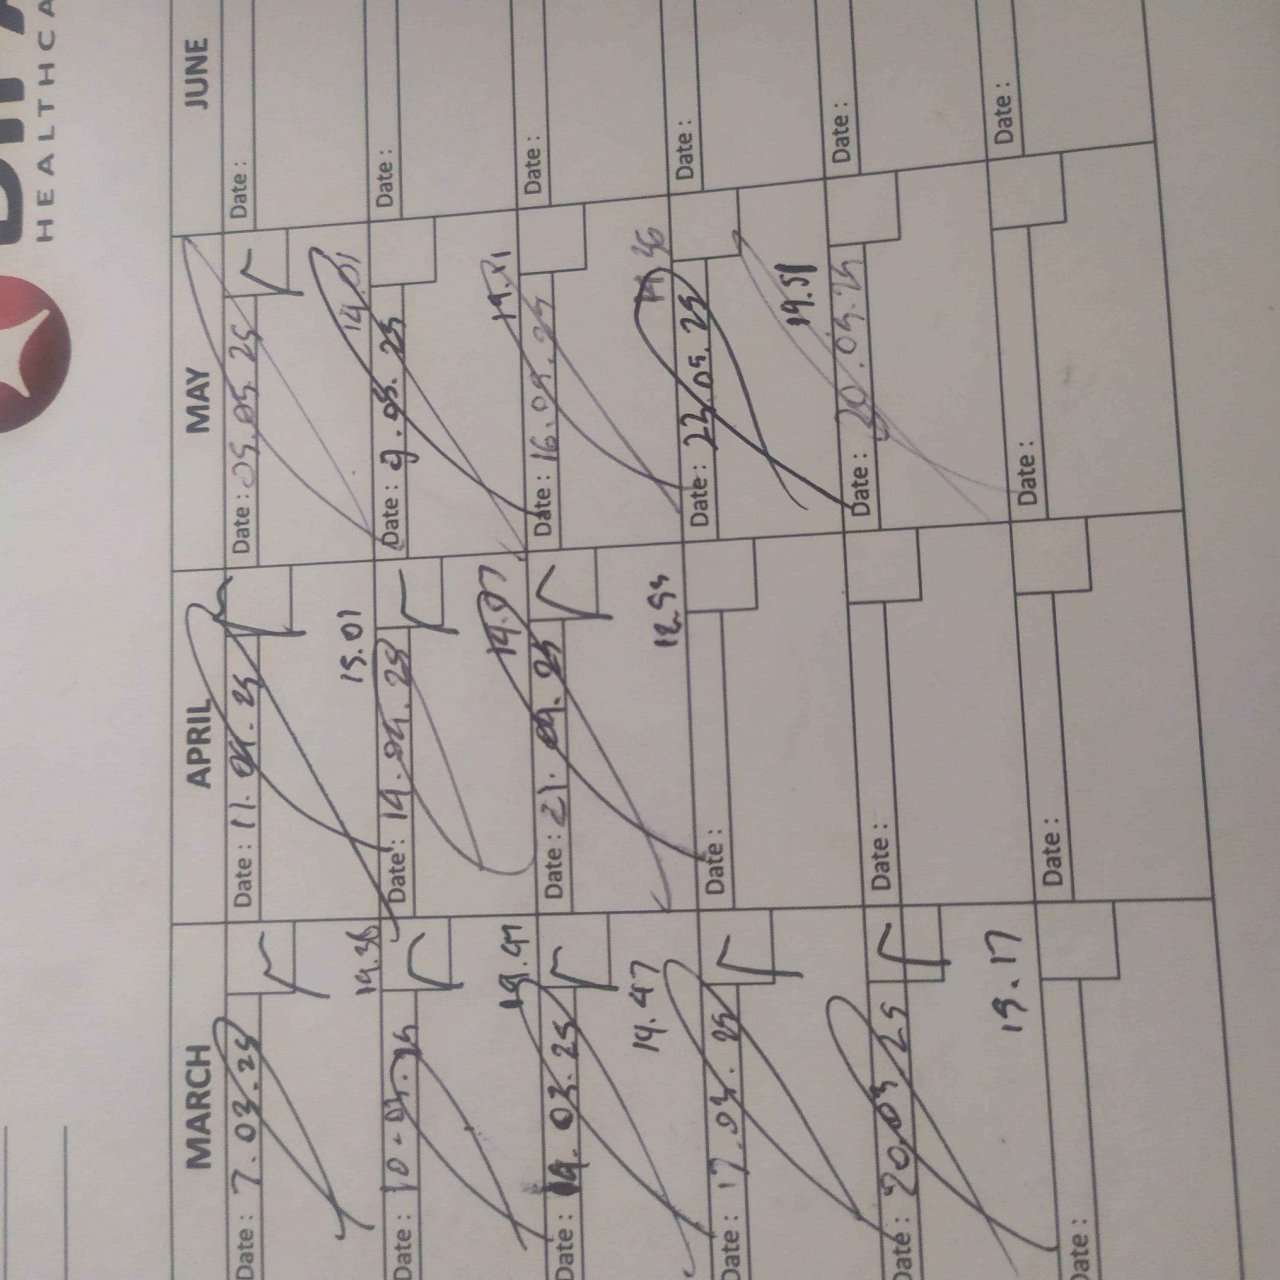 HEALTHCA
MARCH APRIL MAY JUNE
Date : 7.03.25 Date : 11.04.25 Date : 05.05.25 Date :
19.36 15.01 14.01
Date : 10.03.25 Date : 14.04.25 Date : 9.05.25 Date :
19.47 14.07 19.21
Date : 14.03.25 Date : 21.04.25 Date : 16.05.25 Date :
14.47 12.55 36
Date : 17.03.25 Date : Date : 22.05.25 Date :
19.51
Date : 20.03.25 Date : Date : 30.05.25 Date :
19.17
Date : Date : Date : Date :